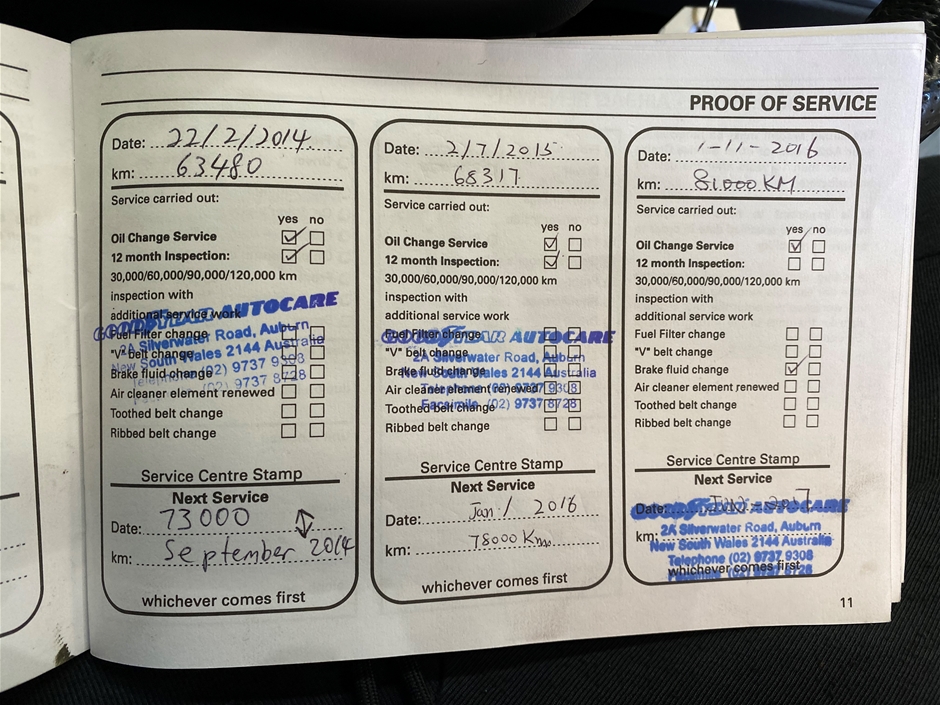 PROOF OF SERVICE
Date: 22/2/2014
km: 63480
Service carried out:
yes no
Oil Change Service
12 month Inspection:
30,000/60,000/90,000/120,000 km
inspection with
additional service work
GOODYEAR AUTOCARE
Fuel Filter change
2A Silverwater Road, Auburn
"V" belt change
New South Wales 2144 Australia
Brake fluid change
Telephone (02) 9737 9308
(02) 9737 8728
Air cleaner element renewed
Toothed belt change
Ribbed belt change
Service Centre Stamp
Next Service
Date: 73000
km: September 2014
whichever comes first
Date: 2/7/2015
km: 68317
Service carried out:
Oil Change Service
12 month Inspection:
30,000/60,000/90,000/120,000 km
inspection with
additional service work
GOODYEAR AUTOCARE
Fuel Filter change
2A Silverwater Road, Auburn
"V" belt change
New South Wales 2144 Australia
Brake fluid change
Telephone (02) 9737 9308
Air cleaner element renewed
Facsimile (02) 9737 8728
Toothed belt change
Ribbed belt change
Service Centre Stamp
Next Service
Date: Jan / 2016
km: 78000 Km
whichever comes first
Date: 1-11-2016
km: 81000 KM
Service carried out:
yes no
Oil Change Service
12 month Inspection:
30,000/60,000/90,000/120,000 km
inspection with
additional service work
Fuel Filter change
"V" belt change
Brake fluid change
Air cleaner element renewed
Toothed belt change
Ribbed belt change
Service Centre Stamp
Next Service
Date:
GOODYEAR AUTOCARE
2A Silverwater Road, Auburn
km:
New South Wales 2144 Australia
Telephone (02) 9737 9308
whichever comes first
Facsimile (02) 9737 8728
11